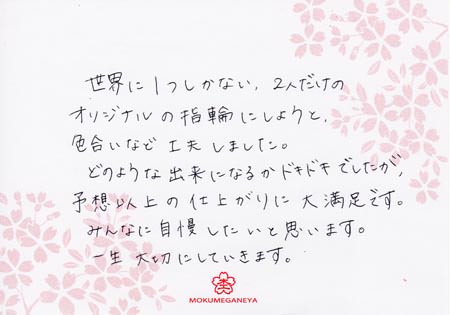 世界に1つしかない、2人だけの
オリジナルの指輪にしようと、
色合いなど工夫しました。
どのような出来になるかドキドキでしたが、
予想以上の仕上がりに大満足です。
みんなに自慢したいと思います。
一生大切にしていきます。
MOKUMEGANEYA